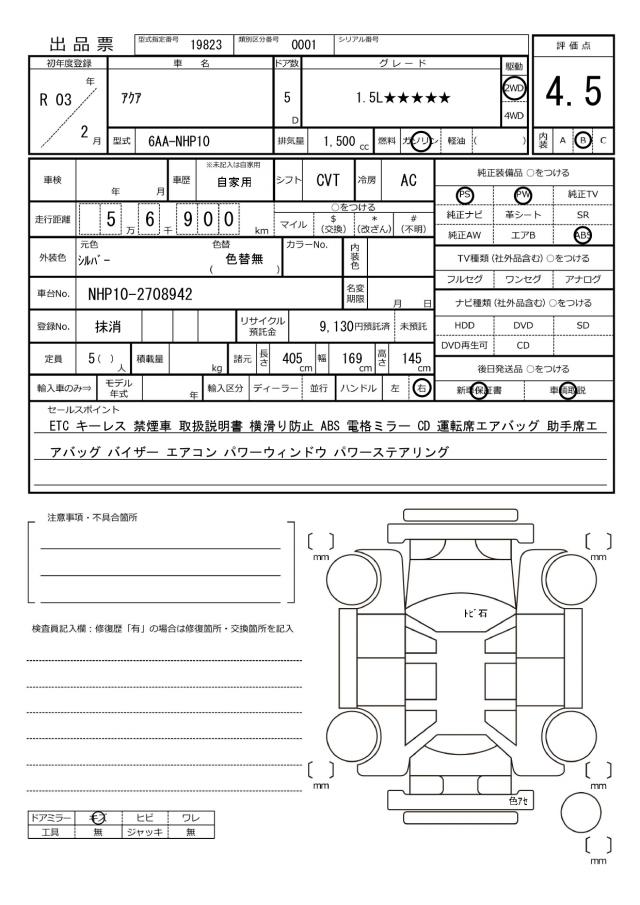 出品票 型式指定番号 19823 類別区分番号 0001 シリアル番号
評価点
4.5
初年度登録 車名 ドア数 グレード 駆動
R 03 年 2 月
ｱｸｱ
5 D
1.5L★★★★★
2WD
4WD
型式 6AA-NHP10 排気量 1,500 cc 燃料 ガソリン 軽油 ( )
内装 A B C
車検 年 月 車歴 ※未記入は自家用 自家用 シフト CVT 冷房 AC
純正装備品 ○をつける
PS PW 純正TV
純正ナビ 革シート SR
純正AW エアB ABS
走行距離 5 万 6 千 9 0 0 km
○をつける
マイル $(交換) *(改ざん) #(不明)
外装色 元色 ｼﾙﾊﾞｰ 色替 ( 色替無 ) カラーNo. 内装色
TV種類 (社外品含む) ○をつける
フルセグ ワンセグ アナログ
車台No. NHP10-2708942 名変期限 月 日
ナビ種類 (社外品含む) ○をつける
HDD DVD SD
DVD再生可 CD
登録No. 抹消 リサイクル預託金 9,130円預託済 未預託
定員 5 ( ) 人 積載量 kg 諸元 長さ 405 cm 幅 169 cm 高さ 145 cm
後日発送品 ○をつける
新車保証書 車輌取説
輸入車のみ⇒ モデル年式 年 輸入区分 ディーラー 並行 ハンドル 左 右
セールスポイント
ETC キーレス 禁煙車 取扱説明書 横滑り防止 ABS 電格ミラー CD 運転席エアバッグ 助手席エ
アバッグ バイザー エアコン パワーウィンドウ パワーステアリング
注意事項・不具合箇所
mm
mm
ﾄﾋﾞ石
検査員記入欄：修復歴「有」の場合は修復箇所・交換箇所を記入
mm
mm
色ｱｾ
ドアミラー キズ ヒビ ワレ
工具 無 ジャッキ 無
mm